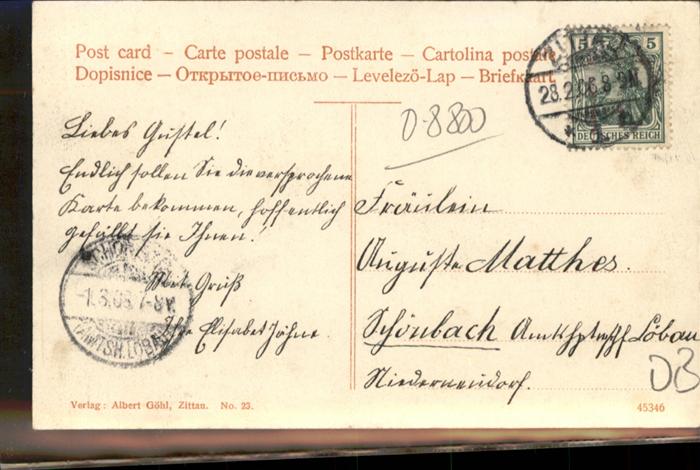 Post card – Carte postale – Postkarte – Cartolina postale
Dopisnice – Открытое-письмо – Levelezö-Lap – Briefkaart
5 5
DEUTSCHES REICH
28.2.06. 8-9N.
D-8800
Liebes Gustel!
Endlich sollen Sie die versprochene
Karte bekommen, hoffentlich
gefällt sie Ihnen!
Mit Gruß
Ihre Elisabet Jähne.
-1.3.06. 7-8V.
(AMTSH. LÖBAU)
Fräulein
Auguste Matthes.
Schönbach Amtshptmsch Löbau
Niederneundorf.
DB
Verlag: Albert Göhl, Zittau. No. 23.
45346